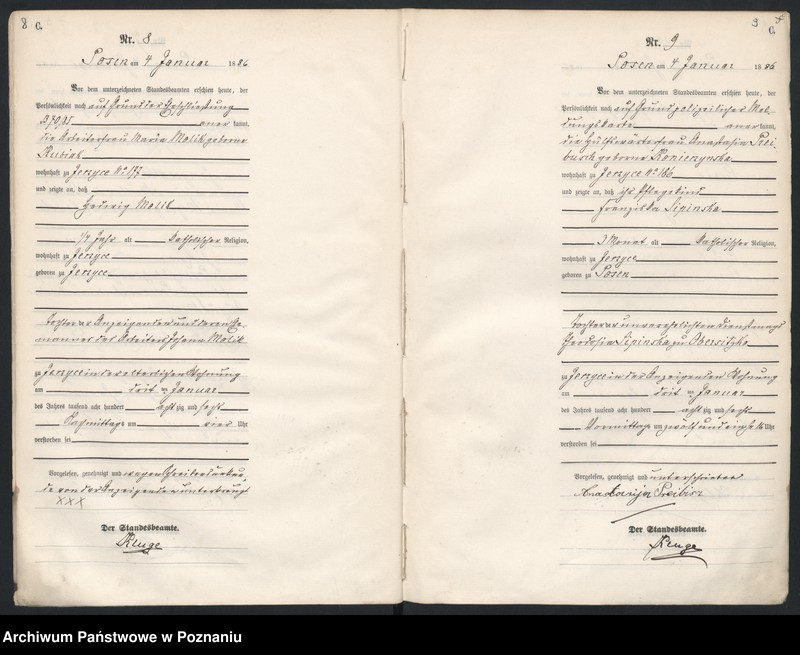 8 C.
Nr. 8
Posen am 4 Januar 1886
Vor dem unterzeichneten Standesbeamten erschien heute, der
Persönlichkeit nach auf Grund der Eheschließung
anerkannt,
die Arbeiterfrau Maria Malik geborne
Kubiak
wohnhaft zu Jerzyce No 177
und zeigte an, daß
Hedwig Malik
1/4 Jahr alt katholischer Religion,
wohnhaft zu Jerzyce
geboren zu Jerzyce
Tochter der Anzeigenden und deren Ehe
mannes des Arbeiters Malik
zu Jerzyce in der elterlichen Wohnung
am drit ten Januar
des Jahres tausend acht hundert acht zig und sechs
Nachmittags um vier Uhr
verstorben sei
Vorgelesen, genehmigt und wegen Schreibensunkun
de von der Anzeigenden unterkreuzt
XXX
Der Standesbeamte.
Kluge
9
C.
Nr. 9
Posen am 4 Januar 1886
Vor dem unterzeichneten Standesbeamten erschien heute, der
Persönlichkeit nach auf Grund polizeilicher Mel
dungskarte anerkannt,
die Hülfswärterfrau Anastasia Prei
busch geborne Konieczynska
wohnhaft zu Jerzyce No 166
und zeigte an, daß ihr Pflegekind
Franziska Lipinska
3 Monat alt katholischer Religion,
wohnhaft zu Jerzyce
geboren zu Posen
Tochter der unverehelichten Dienstmagd
Theodosia Lipinska zu Obersitzko
zu Jerzyce in der Anzeigenden Wohnung
am drit ten Januar
des Jahres tausend acht hundert acht zig und sechs
Vormittags um zwölf und einhalb Uhr
verstorben sei
Vorgelesen, genehmigt und unterschrieben
Preibisz
Der Standesbeamte.
Kluge
Archiwum Państwowe w Poznaniu